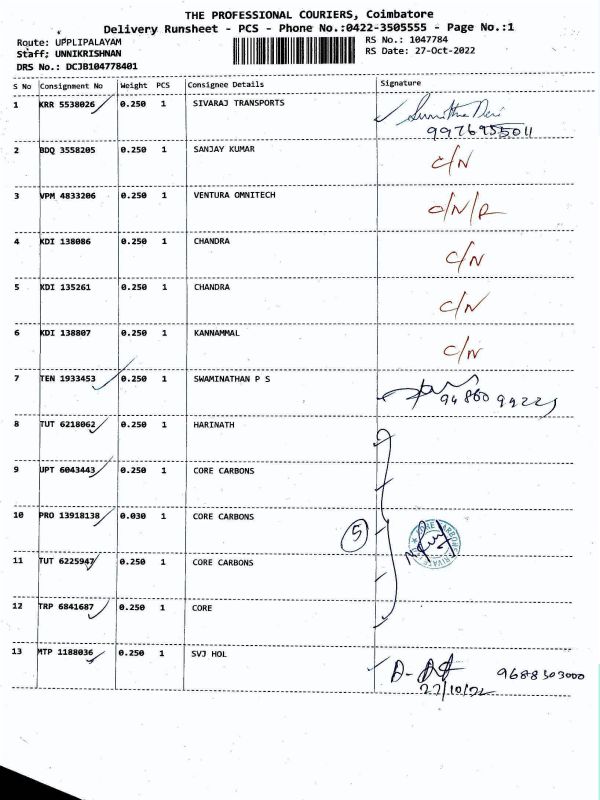 THE PROFESSIONAL COURIERS, Coimbatore
Delivery Runsheet - PCS - Phone No.:0422-3505555 - Page No.:1
Route: UPPLIPALAYAM
RS No.: 1047784
Staff; UNNIKRISHNAN
RS Date: 27-Oct-2022
DRS No.: DCJB104778401
S No Consignment No Weight PCS Consignee Details Signature
1 KRR 5538026 0.250 1 SIVARAJ TRANSPORTS
9976955011
2 BDQ 3558205 0.250 1 SANJAY KUMAR C/N
3 VPM 4833206 0.250 1 VENTURA OMNITECH
4 KDI 138086 0.250 1 CHANDRA C/N
5 KDI 135261 0.250 1 CHANDRA C/N
6 KDI 138807 0.250 1 KANNAMMAL C/N
7 TEN 1933453 0.250 1 SWAMINATHAN P S
8 TUT 6218062 0.250 1 HARINATH
9 UPT 6043443 0.250 1 CORE CARBONS
10 PRO 13918138 0.030 1 CORE CARBONS 5
11 TUT 6225947 0.250 1 CORE CARBONS
12 TRP 6841687 0.250 1 CORE
13 MTP 1188036 0.250 1 SVJ HOL 9688303000
27/10/22